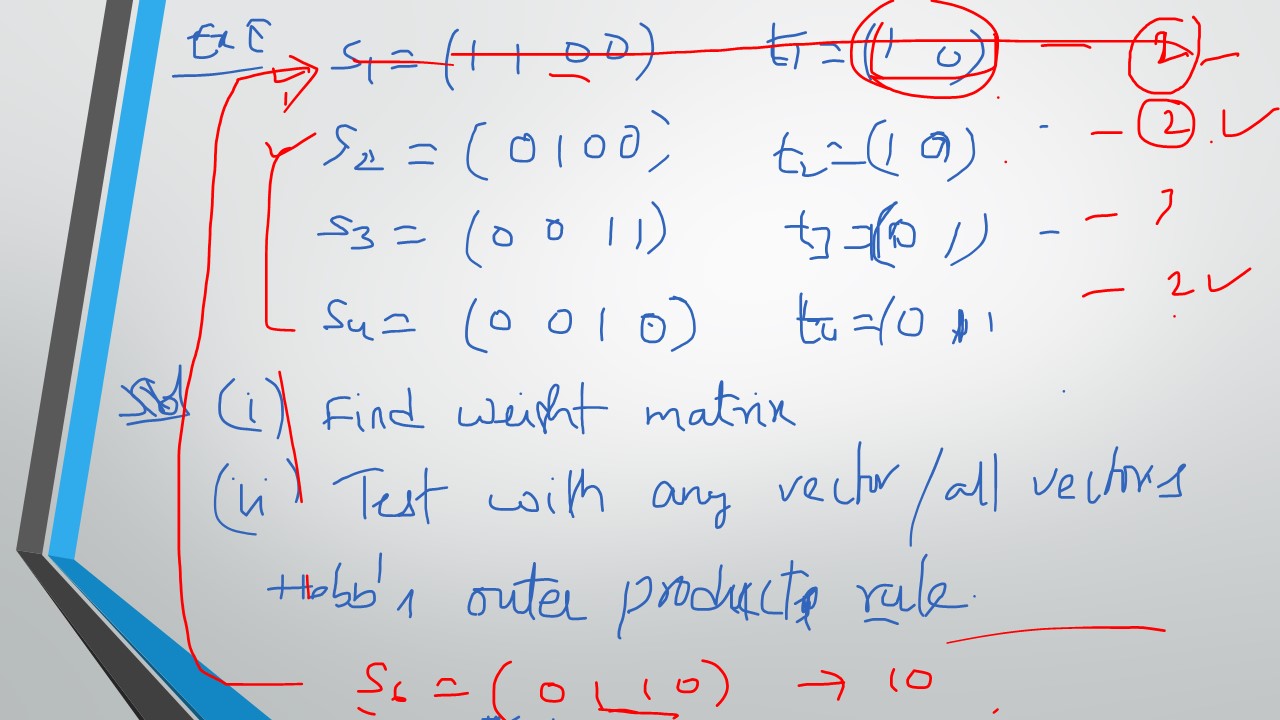 Ex:
S1 = (1 1 0 0) t1 = (1 0) —
S2 = (0 1 0 0) t2 = (1 0) - — 2 ✓
S3 = (0 0 1 1) t3 = (0 1) - —
S4 = (0 0 1 0) t4 = (0 1 — 2 ✓
Sol (i) Find weight matrix
(ii) Test with any vector / all vectors
Hebb's outer products rule.
S6 = (0 1 1 0) → 10